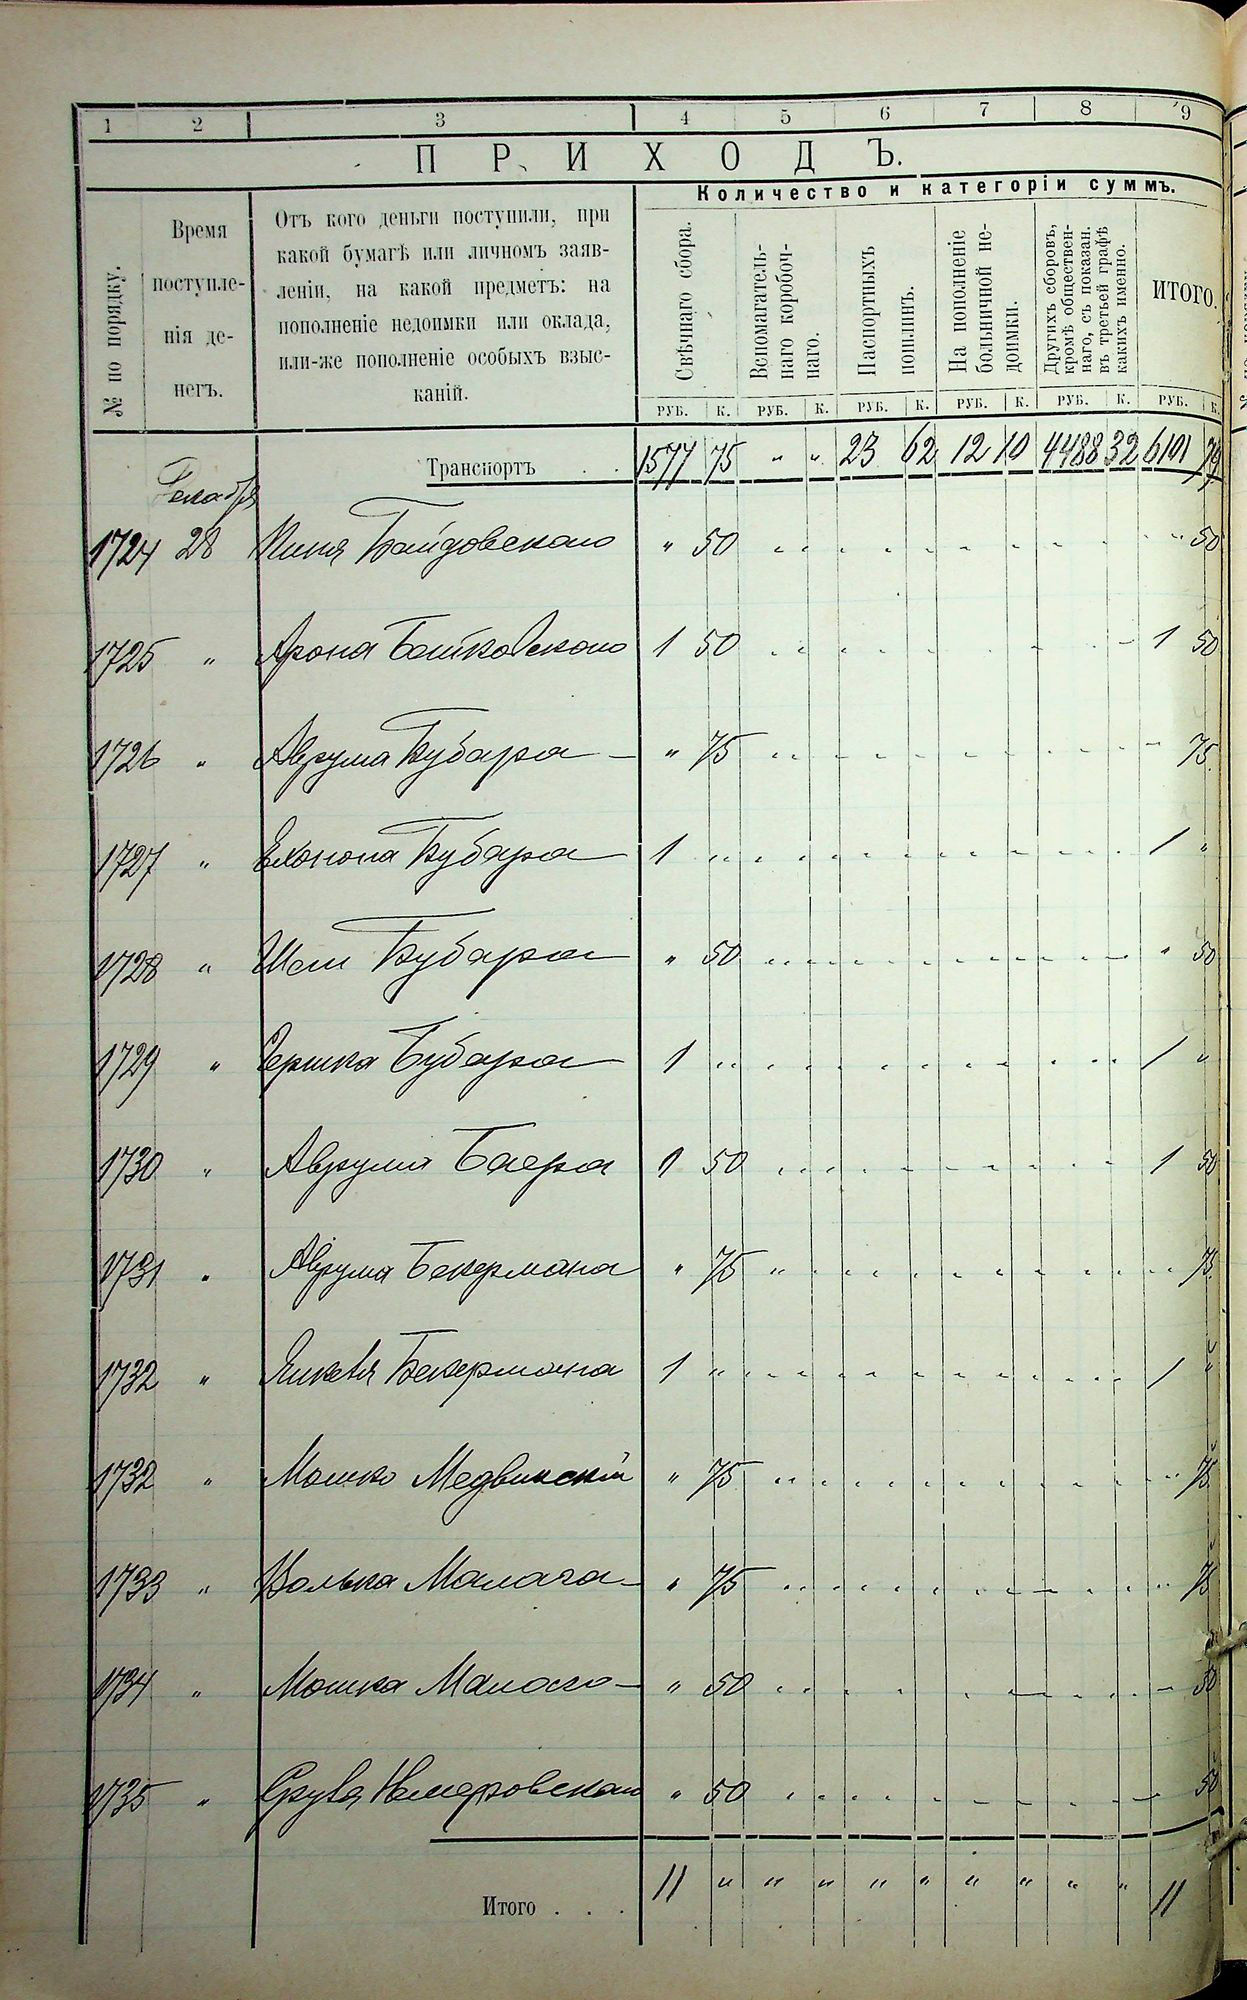 1 2 3 4 5 6 7 8 9
ПРИХОДЪ.
№ по порядку.
Время
поступле-
нія де-
негъ.
Отъ кого деньги поступили, при
какой бумагѣ или личномъ заяв-
леніи, на какой предметъ: на
пополненіе недоимки или оклада,
или-же пополненіе особыхъ взыс-
каній.
Количество и категоріи суммъ.
Свѣчнаго сбора.
Вспомагатель-
наго коробоч-
наго.
Паспортныхъ
пошлинъ.
На пополненіе
больничной не-
доимки.
Другихъ сборовъ,
кромѣ обществен-
наго, съ показан.
въ третьей графѣ
какихъ именно.
ИТОГО.
РУБ. К. РУБ. К. РУБ. К. РУБ. К. РУБ. К. РУБ. К.
Транспортъ . . 1577 75 " " 23 62 12 10 4488 32 6101 79
Декабря
1724 28 Пиня Байдовского " 50 " " " " " " " " " 50
1725 " Арона Башковского 1 50 " " " " " " " " 1 50
1726 " Аврума Бубара — " 75 " " " " " " " " " 75
1727 " Елхонона Бубара 1 " " " " " " " " " 1 "
1728 " Шаи Бубара " 50 " " " " " " " " " 50
1729 " Гершка Бубара 1 " " " " " " " " " 1 "
1730 " Аврума Баера 1 50 " " " " " " " " 1 50
1731 " Аврума Бекермана " 75 " " " " " " " " " 75
1732 " Янкеля Бекермана 1 " " " " " " " " " 1 "
1732 " Мошко Медвинскій " 75 " " " " " " " " " 75
1733 " Волька Малага — " 75 " " " " " " " " " 75
1734 " Мошка Малаго — " 50 " " " " " " " " " 50
1735 " Срула Немеровского " 50 " " " " " " " " " 50
Итого . . . 11 " " " " " " " " " 11